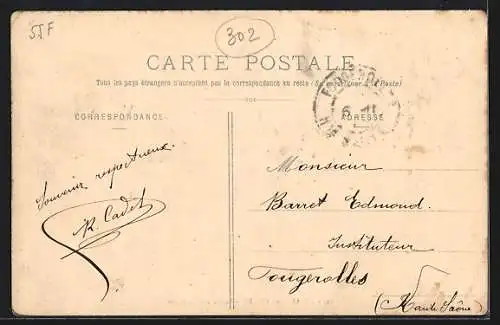 5JF
302
CARTE POSTALE
Tous les pays étrangers n'acceptent pas la correspondance au recto (Se à la Poste)
CORRESPONDANCE
ADRESSE
Souvenir respectueux.
R. Cadet
Monsieur
Barret Edmond.
Instituteur
Fougerolles
(Haute Saône)